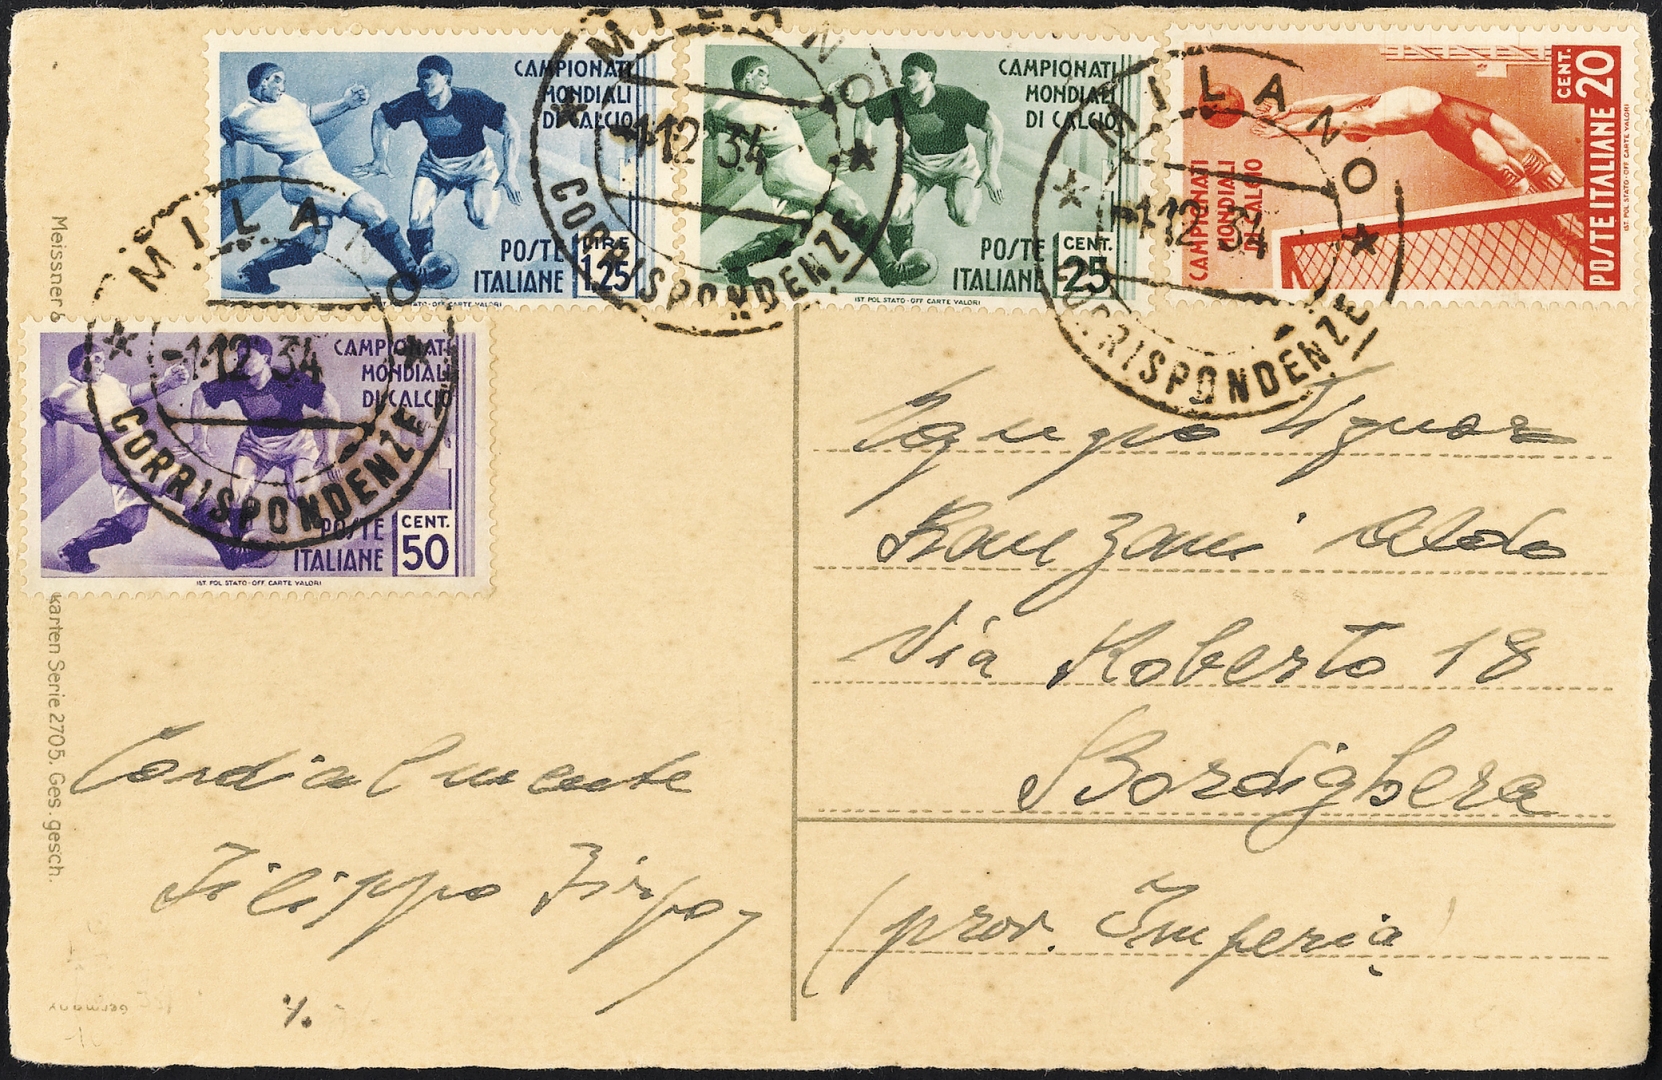 CAMPIONATI
MONDIALI
DI CALCIO
POSTE
ITALIANE
LIRE
1.25
IST. POL. STATO-OFF. CARTE VALORI
CAMPIONATI
MONDIALI
DI CALCIO
POSTE
ITALIANE
CENT.
25
IST. POL. STATO-OFF. CARTE VALORI
CAMPIONATI
MONDIALI
DI CALCIO
CENT. 20
POSTE ITALIANE
IST. POL. STATO-OFF. CARTE VALORI
CAMPIONATI
MONDIALI
DI CALCIO
POSTE
ITALIANE
CENT.
50
IST. POL. STATO-OFF. CARTE VALORI
MILANO
-1.12 34
CORRISPONDENZE
MILANO
-1.12 34
CORRISPONDENZE
MILANO
-1.12 34
CORRISPONDENZE
Meissner &
karten Serie 2705. Ges. gesch.
Signor
Aldo
Via Roberto 18
Bordighera
(prov. Imperia)
Cordialmente
Filippo
Germany